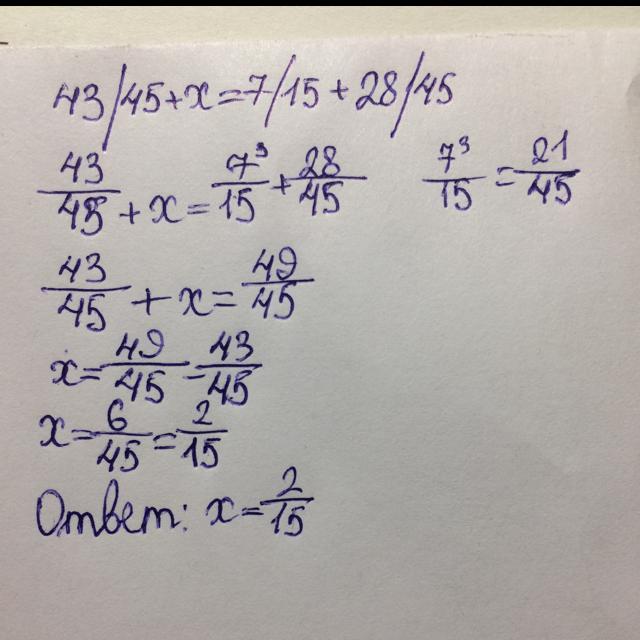 43/45+x=7/15+28/45
43/45+x=7³/15+28/45 7³/15=21/45
43/45+x=49/45
x=49/45-43/45
x=6/45=2/15
Ответ: x=2/15